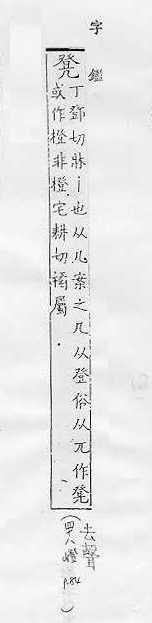 字鑑
凳
丁鄧切牀丨也从几案之几从登俗从兀作凳
或作橙非橙宅耕切橘屬
去聲
(四八嶝 P.84)